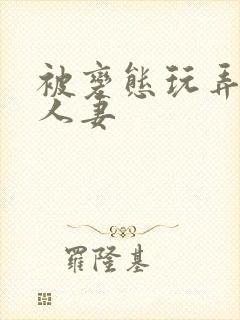 被變態玩弄
人妻
羅隆基